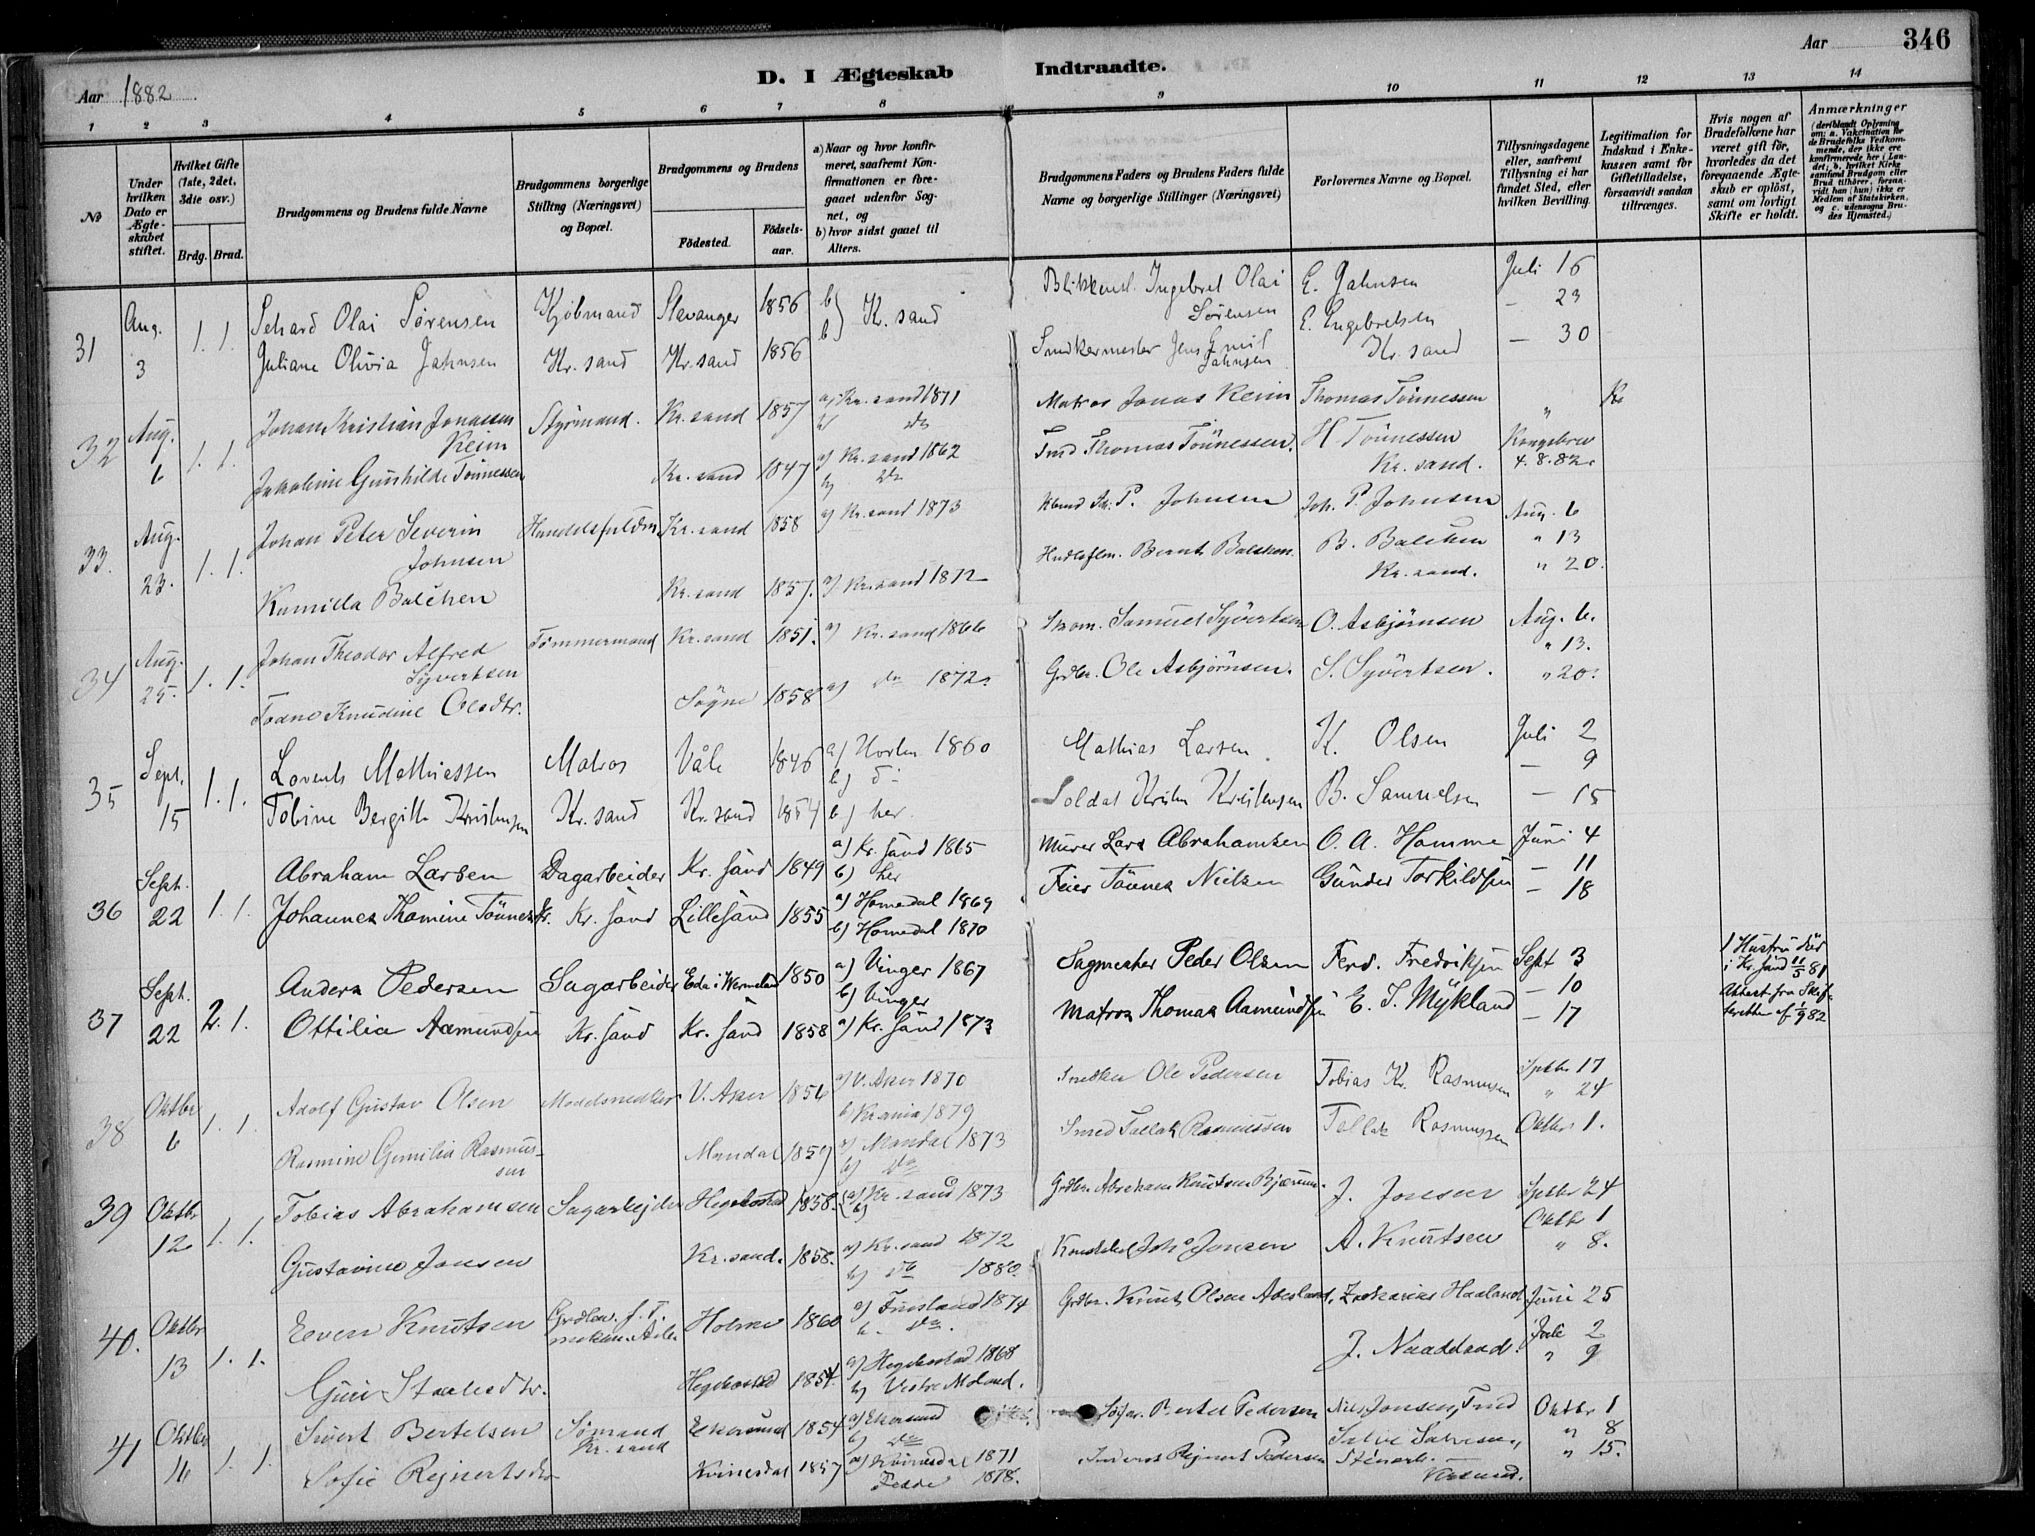 Aar 1882
D. I Ægteskab Indtraadte.
Aar
346
1 2 3 4 5 6 7 8 9 10 11 12 13 14
No
Under hvilken Dato er Ægteskabet stiftet.
Hvilket Gifte (1ste, 2det, 3die osv.)
Brdg. Brud.
Brudgommens og Brudens fulde Navne
Brudgommens borgerlige Stilling (Næringsvei) og Bopæl.
Brudgommens og Brudens
Födested.
Födselsaar.
a) Naar og hvor konfirmeret, saafremt Konfirmationen er foregaaet udenfor Sognet, og
b) hvor sidst gaaet til Alters.
Brudgommens Faders og Brudens Faders fulde Navne og borgerlige Stillinger (Næringsvei)
Forlovernes Navne og Bopæl.
Tillysningsdagene eller, saafremt Tillysning ei har fundet Sted, efter hvilken Bevilling.
Legitimation for Indskud i Enkekassen samt for Giftetilladelse, forsaavidt saadan tiltrænges.
Hvis nogen af Brudefolkene har været gift för, hvorledes da det foregaaende Ægteskab er oplöst, samt om lovligt Skifte er holdt.
Anmærkninger (deriblandt Oplysning om: a. Vakcination for de Brudefolks Vedkommende, der ikke ere konfirmerede her i Landet, b. hvilket Kirkesamfund Brudgom eller Brud tilhörer, forsaavidt han (hun) ikke er Medlem af Statskirken, og c. udensogns Brudes Hjemsted.)
31 Aug. 3 1. 1.
Sehard Olai Sørensen Kjöbmand Stavanger 1856 b) Kr. sand Blikkensl. Ingebret Olai Sörensen E. Jahnsen Juli 16
— 23
Juliane Olivia Jahnsen Kr. sand Kr. sand 1856 b) Snedkermester Jens Emil Jahnsen E. Engebretsen Kr. sand — 30
32 Aug. 6 1. 1.
Johan Kristian Jonassen Reim Styrmand. Kr. sand 1857 a) Kr. sand 1871 b) do Matros Jonas Reim Thomas Tönnessen "
Jakobine Gunhilde Tönnessen Kr. sand 1847 a) Kr. sand 1862 b) do Thomas Tönnessen. H Tönnessen Kr. sand. Kongebrev 4. 8. 82.
33. Aug. 23. 1. 1.
Johan Peter Severin Johnsen Handelsfuldm. Kr. sand 1858 a) Kr. sand 1873 P. Johnsen Joh. P. Johnsen Aug. 6
" 13
Kamilla Balchen Kr. sand 1857. a) Kr. sand 1872 Bernt Balchen. B. Balchen Kr. sand. " 20.
34 Aug. 25. 1. 1.
Johan Theodor Alfred Syvertsen Tömmermand Kr. sand 1851. a) Kr. sand 1866 Skom. Samuel Syvertsen O. Asbjørnsen Aug. 6.
" 13.
Knudine Olsdtr. Sögne 1858 a) do 1872. Grdbr. Ole Asbjörnsen. S. Syvertsen. " 20.
35 Sept. 15 1. 1.
Lorents Mathiessen Matros Våle 1846 a) Horten 1860 b) do Mathias Larsen K. Olsen Juli 2
— 9
Tobine Bergitte Kristensen Kr. sand Kr. sand 1854 b) her. Soldat Kristen Kristensen B. Samuelsen — 15
36 Sept. 22 1. 1.
Abraham Larsen Dagarbeider Kr. sand 1849 a) Kr. sand 1865 b) her Murer Lars Abrahamsen O. A. Homme Juni 4
— 11
Johanne Thomine Tönnes Kr. sand Lillesand 1855 a) Homedal 1869 b) Homedal 1870 Feier Tönnes Nielsen Gunder Torkildsen — 18
37 Sept. 22 2. 1.
Anders Pedersen Sagarbeider Eda i Wermeland 1850 a) Vinger 1867 b) Vinger Sagmester Peder Olsen Ferd. Fredriksen Sept 3
— 10
1 Hustru död i Kr. sand 11/5 81 Attest fra Skifteretten af 1/9 82
Ottilia Aamundsen Kr. sand Kr. sand 1858 a) Kr. sand 1873 Matros Thomas Aamundsen E. S. Mykland — 17
38 Oktbr 6 1. 1.
Adolf Gustav Olsen Modelsnedker V. Aker 1856 a) V. Aker 1870 b) Krania 1879 Snedker Ole Pedersen Tobias Kr. Rasmussen Sptbr 17
" 24
Rasmine Gumilia Rasmussen Mandal 1859 a) Mandal 1873 b) do Smed Tallak Rasmussen Tallak Rasmussen Oktbr 1.
39 Oktbr 12 1. 1.
Tobias Abrahamsen Sagarbejder Hegebostad 1858. a) Kr. sand 1873 b) Grdbr. Abraham Knutsen J. Jonsen Sptbr 24
Oktbr 1
Gustavine Jonsen Kr. sand. 1858. a) Kr. sand 1872 b) do 1880. Joh. Jonsen A. Knutsen " 8.
40. Oktbr 13 1. 1.
Even Knutsen Holme 1860 a) Finsland 1874 b. do. Grdbr. Knut Olsen Zakarias Haaland Juni 25
Juli 2
Guri Staalesdtr. Hegebostad 1854. a) Hegebostad 1868 b) Vestre Moland. J. Naadland " 9
41 Oktbr 16 1. 1.
Sivert Bertelsen Sömand Kr. sand Ekersund 1854 a) Ekersund b) do Bertel Pedersen Nils Jonsen, Oktbr 1
" 8
Sofie Rejnertsdtr Kvinesdal 1857 a) Kvinesdal 1871 Fedde 1878. Rejnert Pedersen " 15.